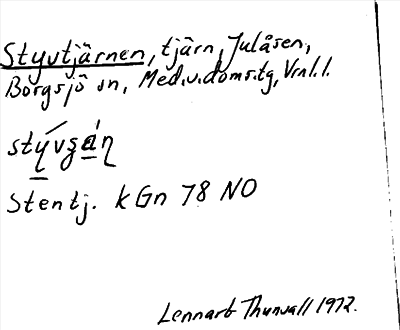 Styvtjärnen, tjärn, Julåsen,
Borgsjö sn, Med.v.doms.tg, Vrnl.l.
Stentj. kGn 78 NO
Lennart Thunvall 1972.